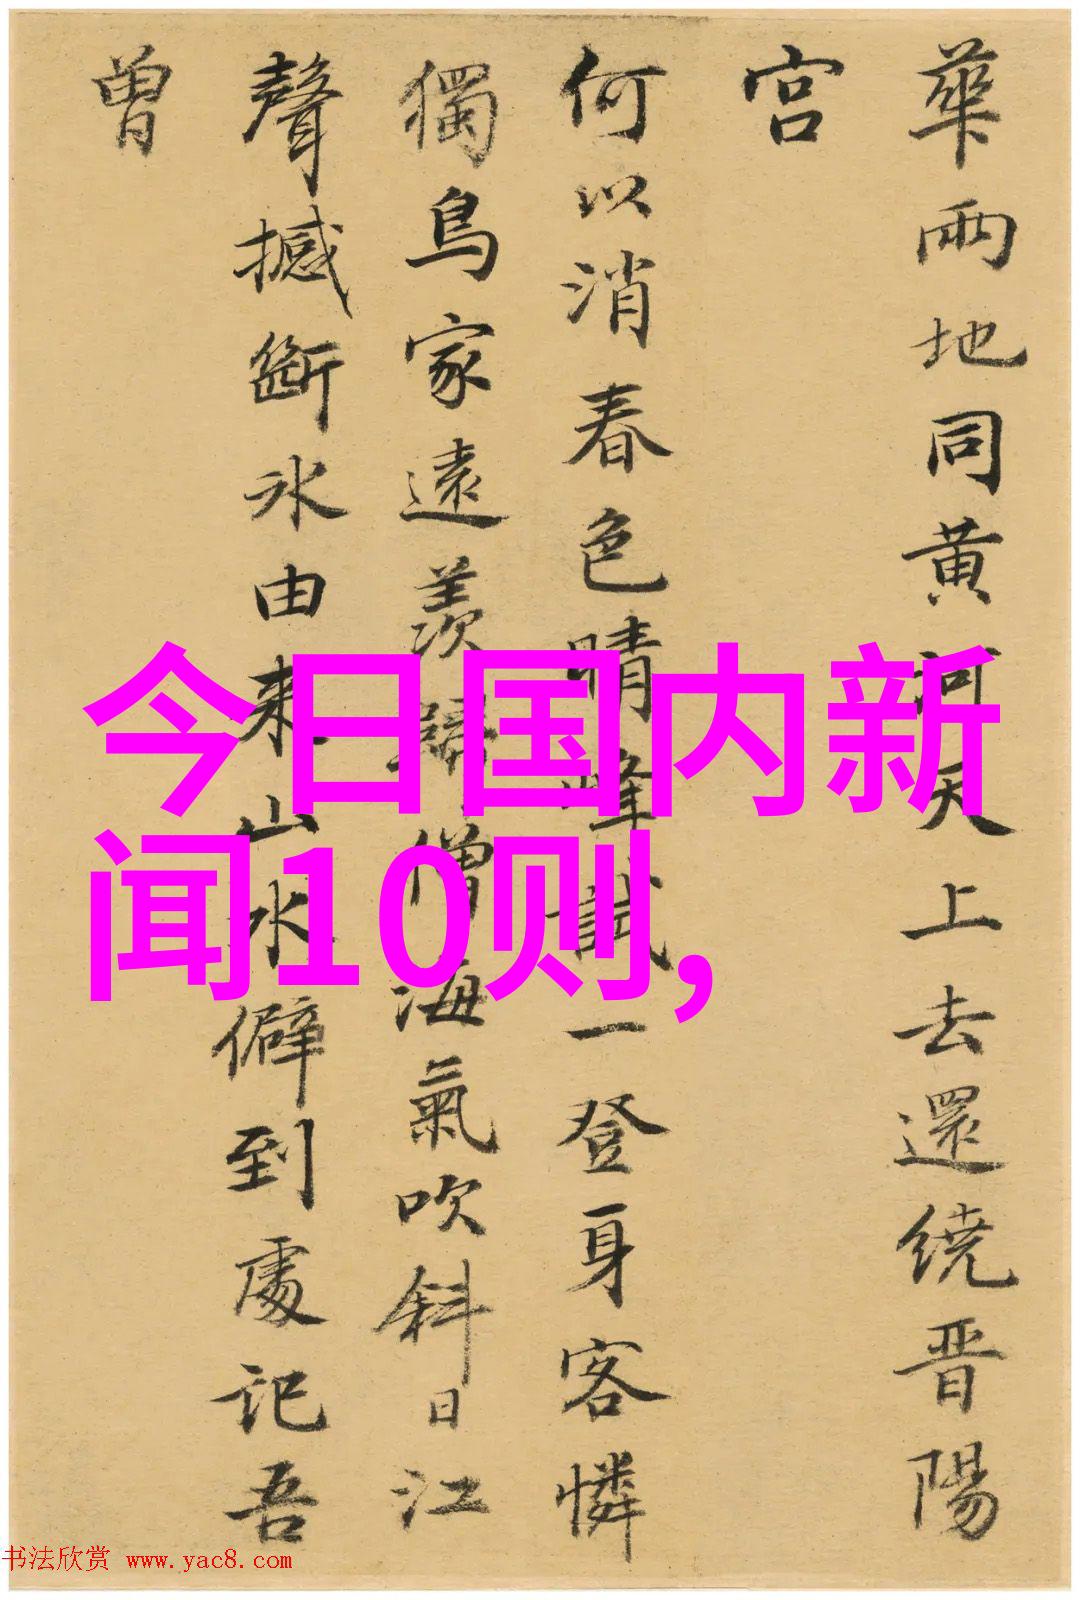 華兩地同黄河天上去還绕晋陽
宫
何以消春色晴峰試一登身客憐
獨鳥家遠羨歸僧海氣吹斜日江
聲撼斷冰由来山水僻到處記吾
曾
今日国内新
闻10则,
书法欣赏 www.yac8.com